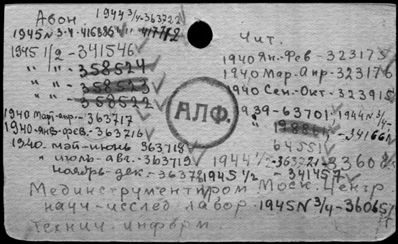 Абон. 1944 3/4-363722
1945 N 3-4-416886
1945 1/2 - 341546
" " - 358524
" " - 358523
" " - 358522
1940 март-апр.- 363717
1940-янв-фев.- 363716
1940. май-июнь 363718
" июль-авг.- 363719
ноябрь-дек.- 36372
Чит.
1940 Ян-Фев - 323173
1940 Мар-Апр - 323176
1940 Сен-Окт - 323915
1939 - 63701 1944 N 3/4
- 34166
64551
АЛФ.
1944 1/2 - 363221 - 33608
1945 1/2 - 341457
Мединструментпром Моск. Центр.
науч-исслед. лабор. 1945 N 3/4 - 36065
технич. информ